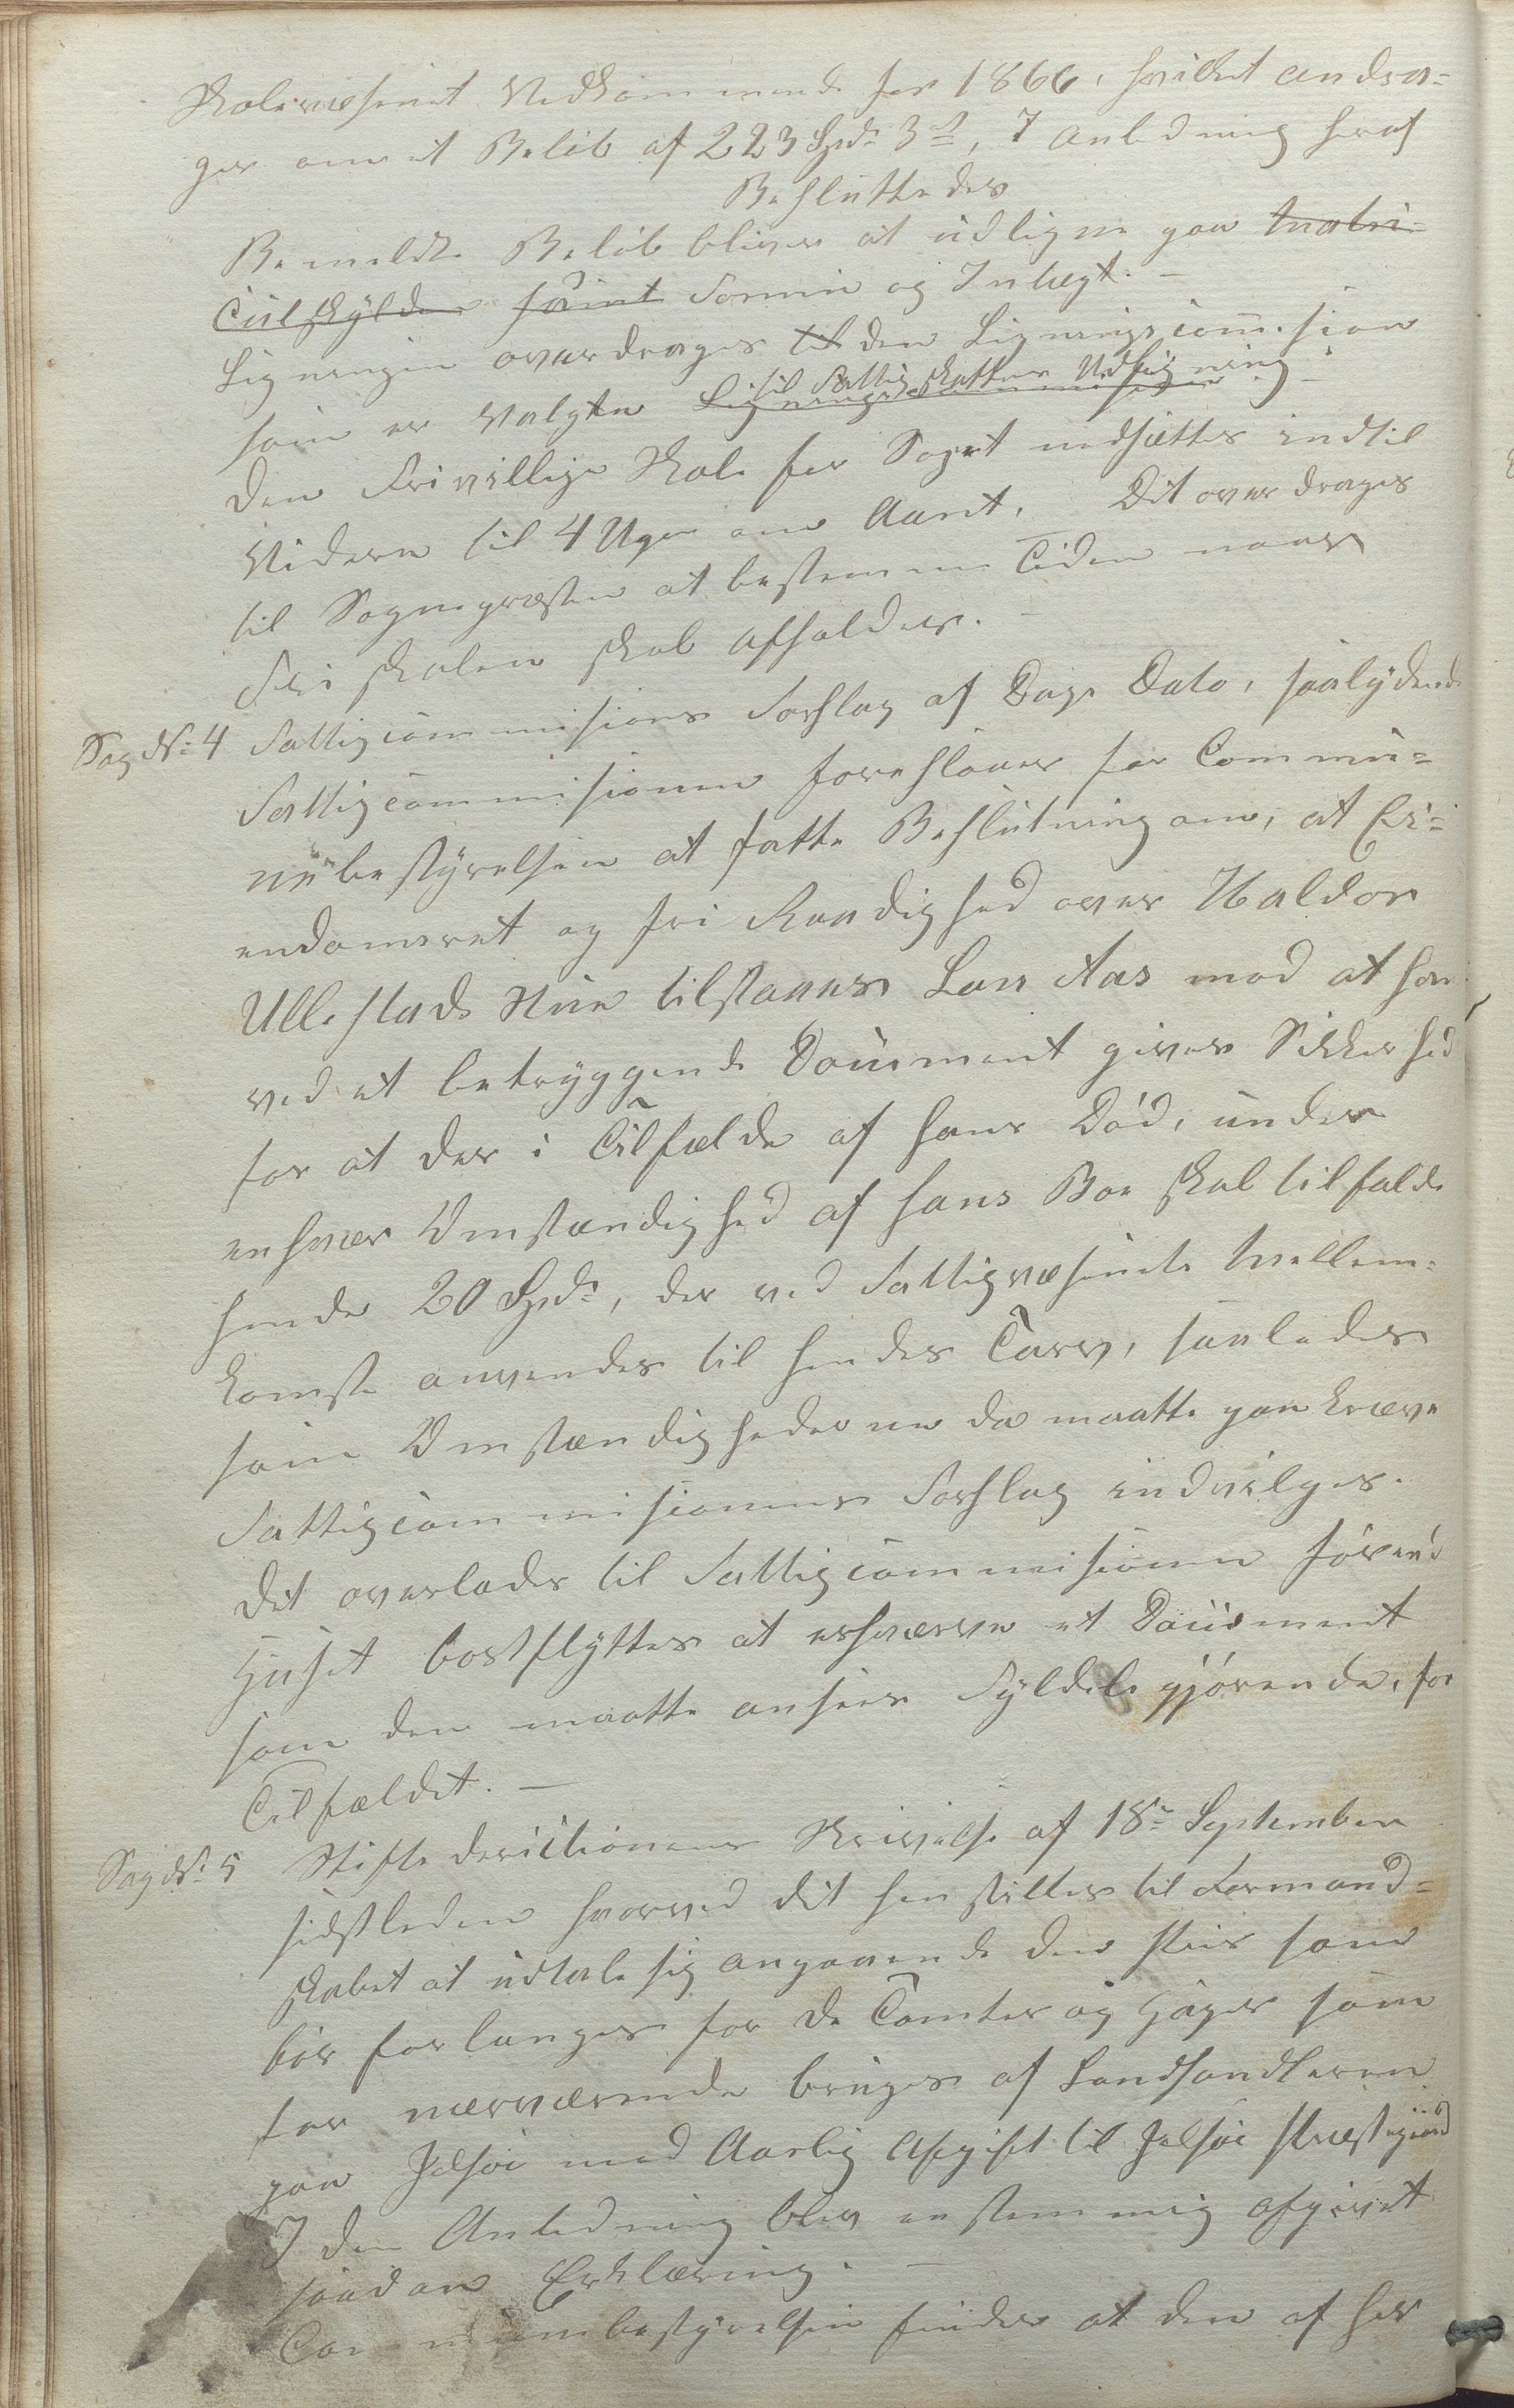 Skolevæsenet Vedkommende for 1866, hvilket andra-
ger om et Beløb af 223 Spd: 3 s, I anledning heraf
Besluttedes
Bemeldte Beløb bliver at udligne paa Matri-
culskylden samt Formue og Indtægt. –
Ligningen overdrages til den Ligningscommision
som er valgte Ligningscommision
til Fattigskattens Udligning –
Den Frivillige Skole for Sognet nedsættes indtil
Videre til 4 Uger om Aaret, Det overdrages
til Sognepræsten at bestemme Tiden naar
Friskolen skal afholdes. –
Sag No: 4 Fattigcommisions Forslag af Dags Dato, saalydende
Fattigcommisionen foreslaaer for Commu-
nebestyrelsen at fatte Beslutning om, at Ei-
endomsret og fri Raadighed over Haldor
Ullestads Hus tilstaaes Lars Aas mod at han
ved et betryggende Document giver Sikkerhed
for at der i Tilfælde af hans Død, under
enhver Omstændighed af hans Boe skal tilfalde
hende 20 Spd:, der ved Fattigvæsenets Mellem-
komst anvendes til hendes Tarv, saaledes
som Omstændighederne da maatte paakræve
Fattigcommisionens Forslag indvilges.
Det overlades til Fattigcommisionen førend
Huset bortflyttes at erhværve et Document
som den maatte ansees Fyldestgjørende, for
Tilfældet. –
Sag No: 5 Stiftsdirectionens Skrivelse af 18de September
sidstleden hvorved det henstilles til Formand-
skabet at udtale sig angaaende den Priis som
bør forlanges for de Tomter og Hager som
for nærværende bruges af Landhandleren
paa Jelsøe mod Aarlig Afgift til Jelsøe Præstegaard
I den Anledning blev enstemmig afgivet
saadan Erklæring. –
Communebestyrelsen finder at den af her